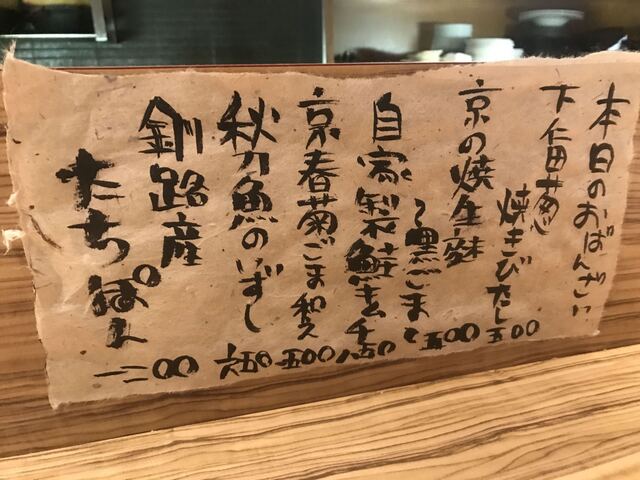 本日のおばんざい
下仁田葱
焼きびたし 五00
京の焼生麩
〜黒ごま〜 五00
自家製鮭キムチ 八五0
京春菊ごま和え 五00
秋刀魚のいずし 六五0
釧路産
たちぽん 一二00